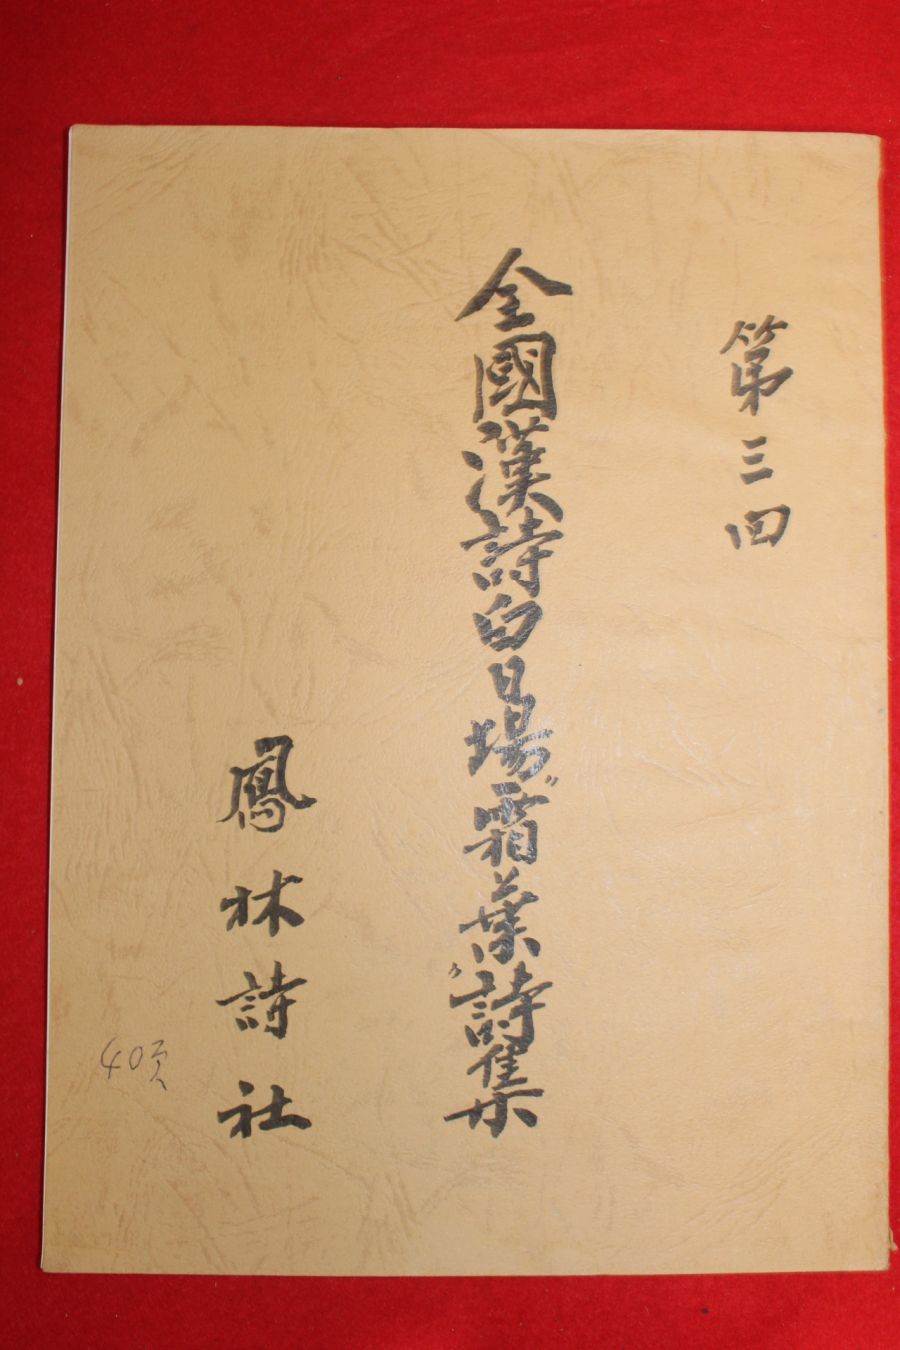 第三回
全國漢詩白日場〃霜葉〃詩集
鳳林詩社
40页